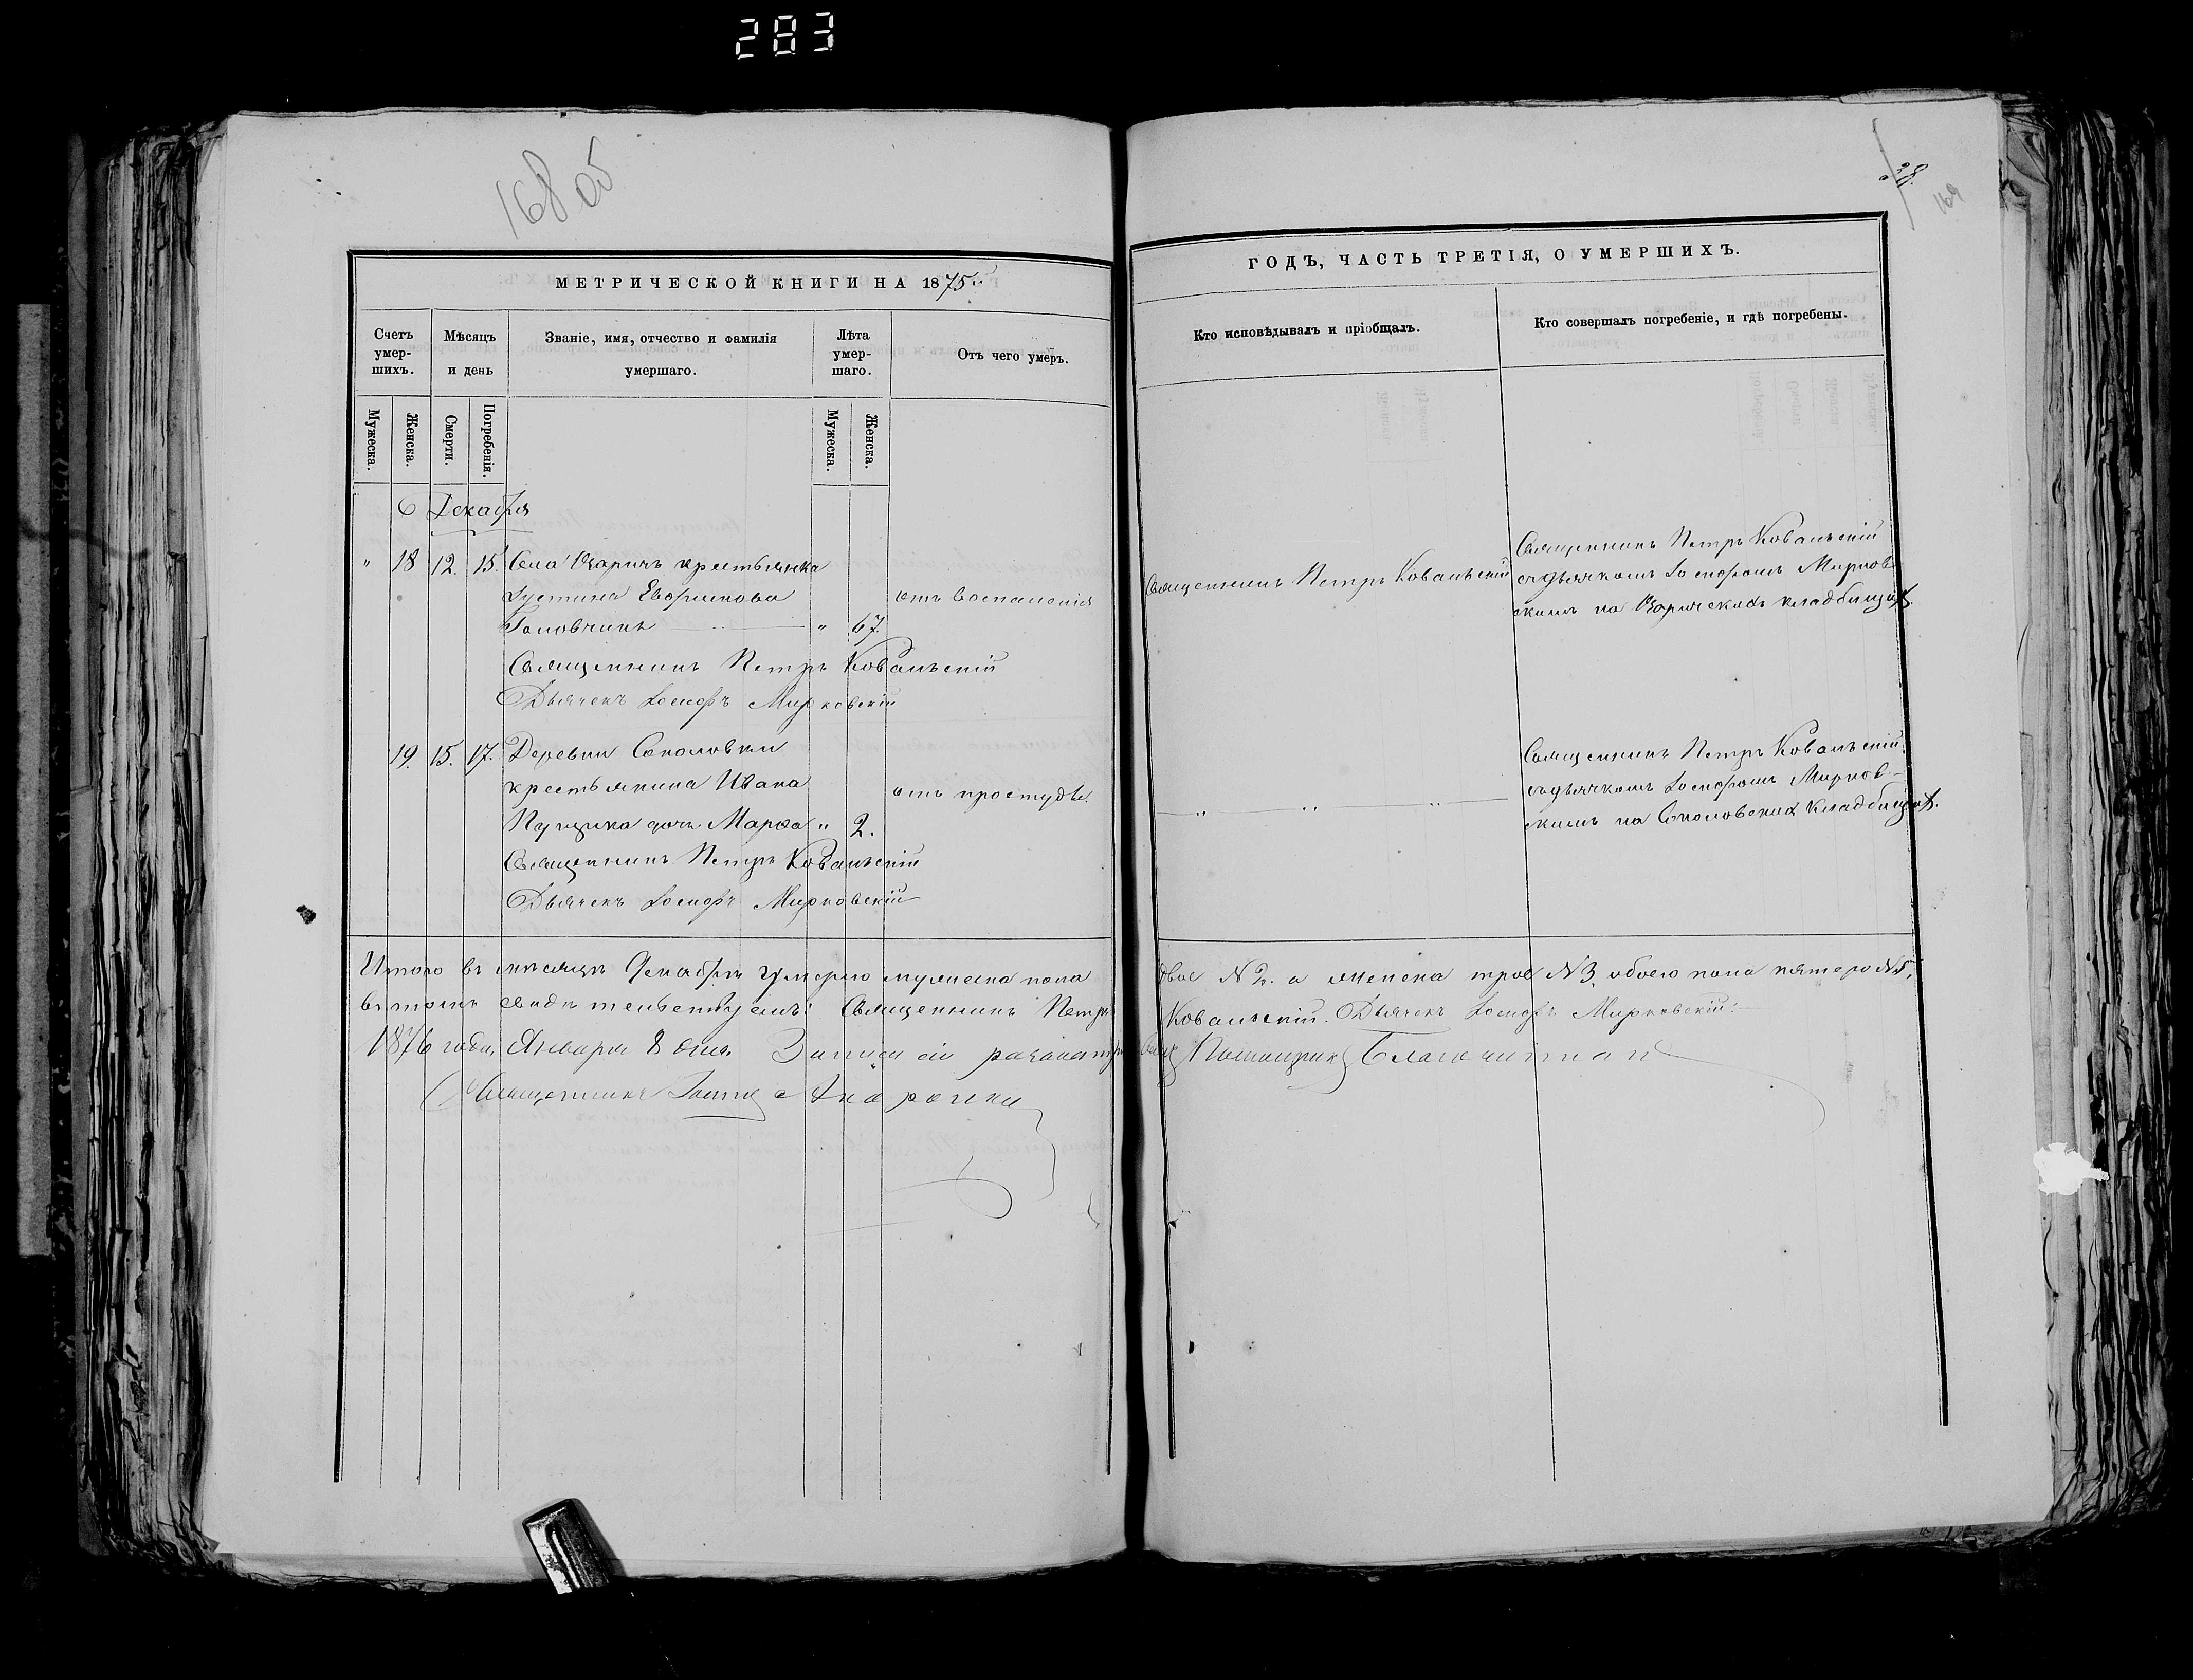 283
168 об
169
МЕТРИЧЕСКОЙ КНИГИ НА 1875
ГОДЪ, ЧАСТЬ ТРЕТІЯ, О УМЕРШИХЪ.
Счетъ умер-шихъ.
Мѣсяцъ и день
Званіе, имя, отчество и фамилія умершаго.
Лѣта умер-шаго.
Отъ чего умеръ.
Кто исповѣдывалъ и пріобщалъ.
Кто совершалъ погребеніе, и гдѣ погребены.
Мужеска.
Женска.
Смерти.
Погребенія.
Мужеска.
Женска.
Декабря
" 18 12. 15. Села крестьянка
Іустина Евфимова отъ воспаленія
" 67.
Священникъ Петръ Ковальскій
Дьячекъ Іосифъ Мирковскій
Священникъ Петръ Ковальскій
Священникъ Петръ Ковальскій
съ дьячкомъ Іосифомъ Мирков
скимъ на кладбищѣ.
19. 15. 17. Деревни Соколовки
крестьянина Ивана отъ простуды.
дочь Марѳа " 2.
Священникъ Петръ Ковальскій
Дьячекъ Іосифъ Мирковскій
" " "
Священникъ Петръ Ковальскій
съ дьячкомъ Іосифомъ Мирков-
скимъ на Соколовских кладбищѣ.
Итого въ мѣсяцѣ Декабрѣ умерло мужеска пола двое №2. а женска трое №3. обоего пола пятеро №5,
въ томъ свидѣтельствуемъ: Священникъ Петръ Ковальскій. Дьячекъ Іосифъ Мирковскій.
1876 года, Января 8 дня. Записи сіи Благочинный
Священникъ